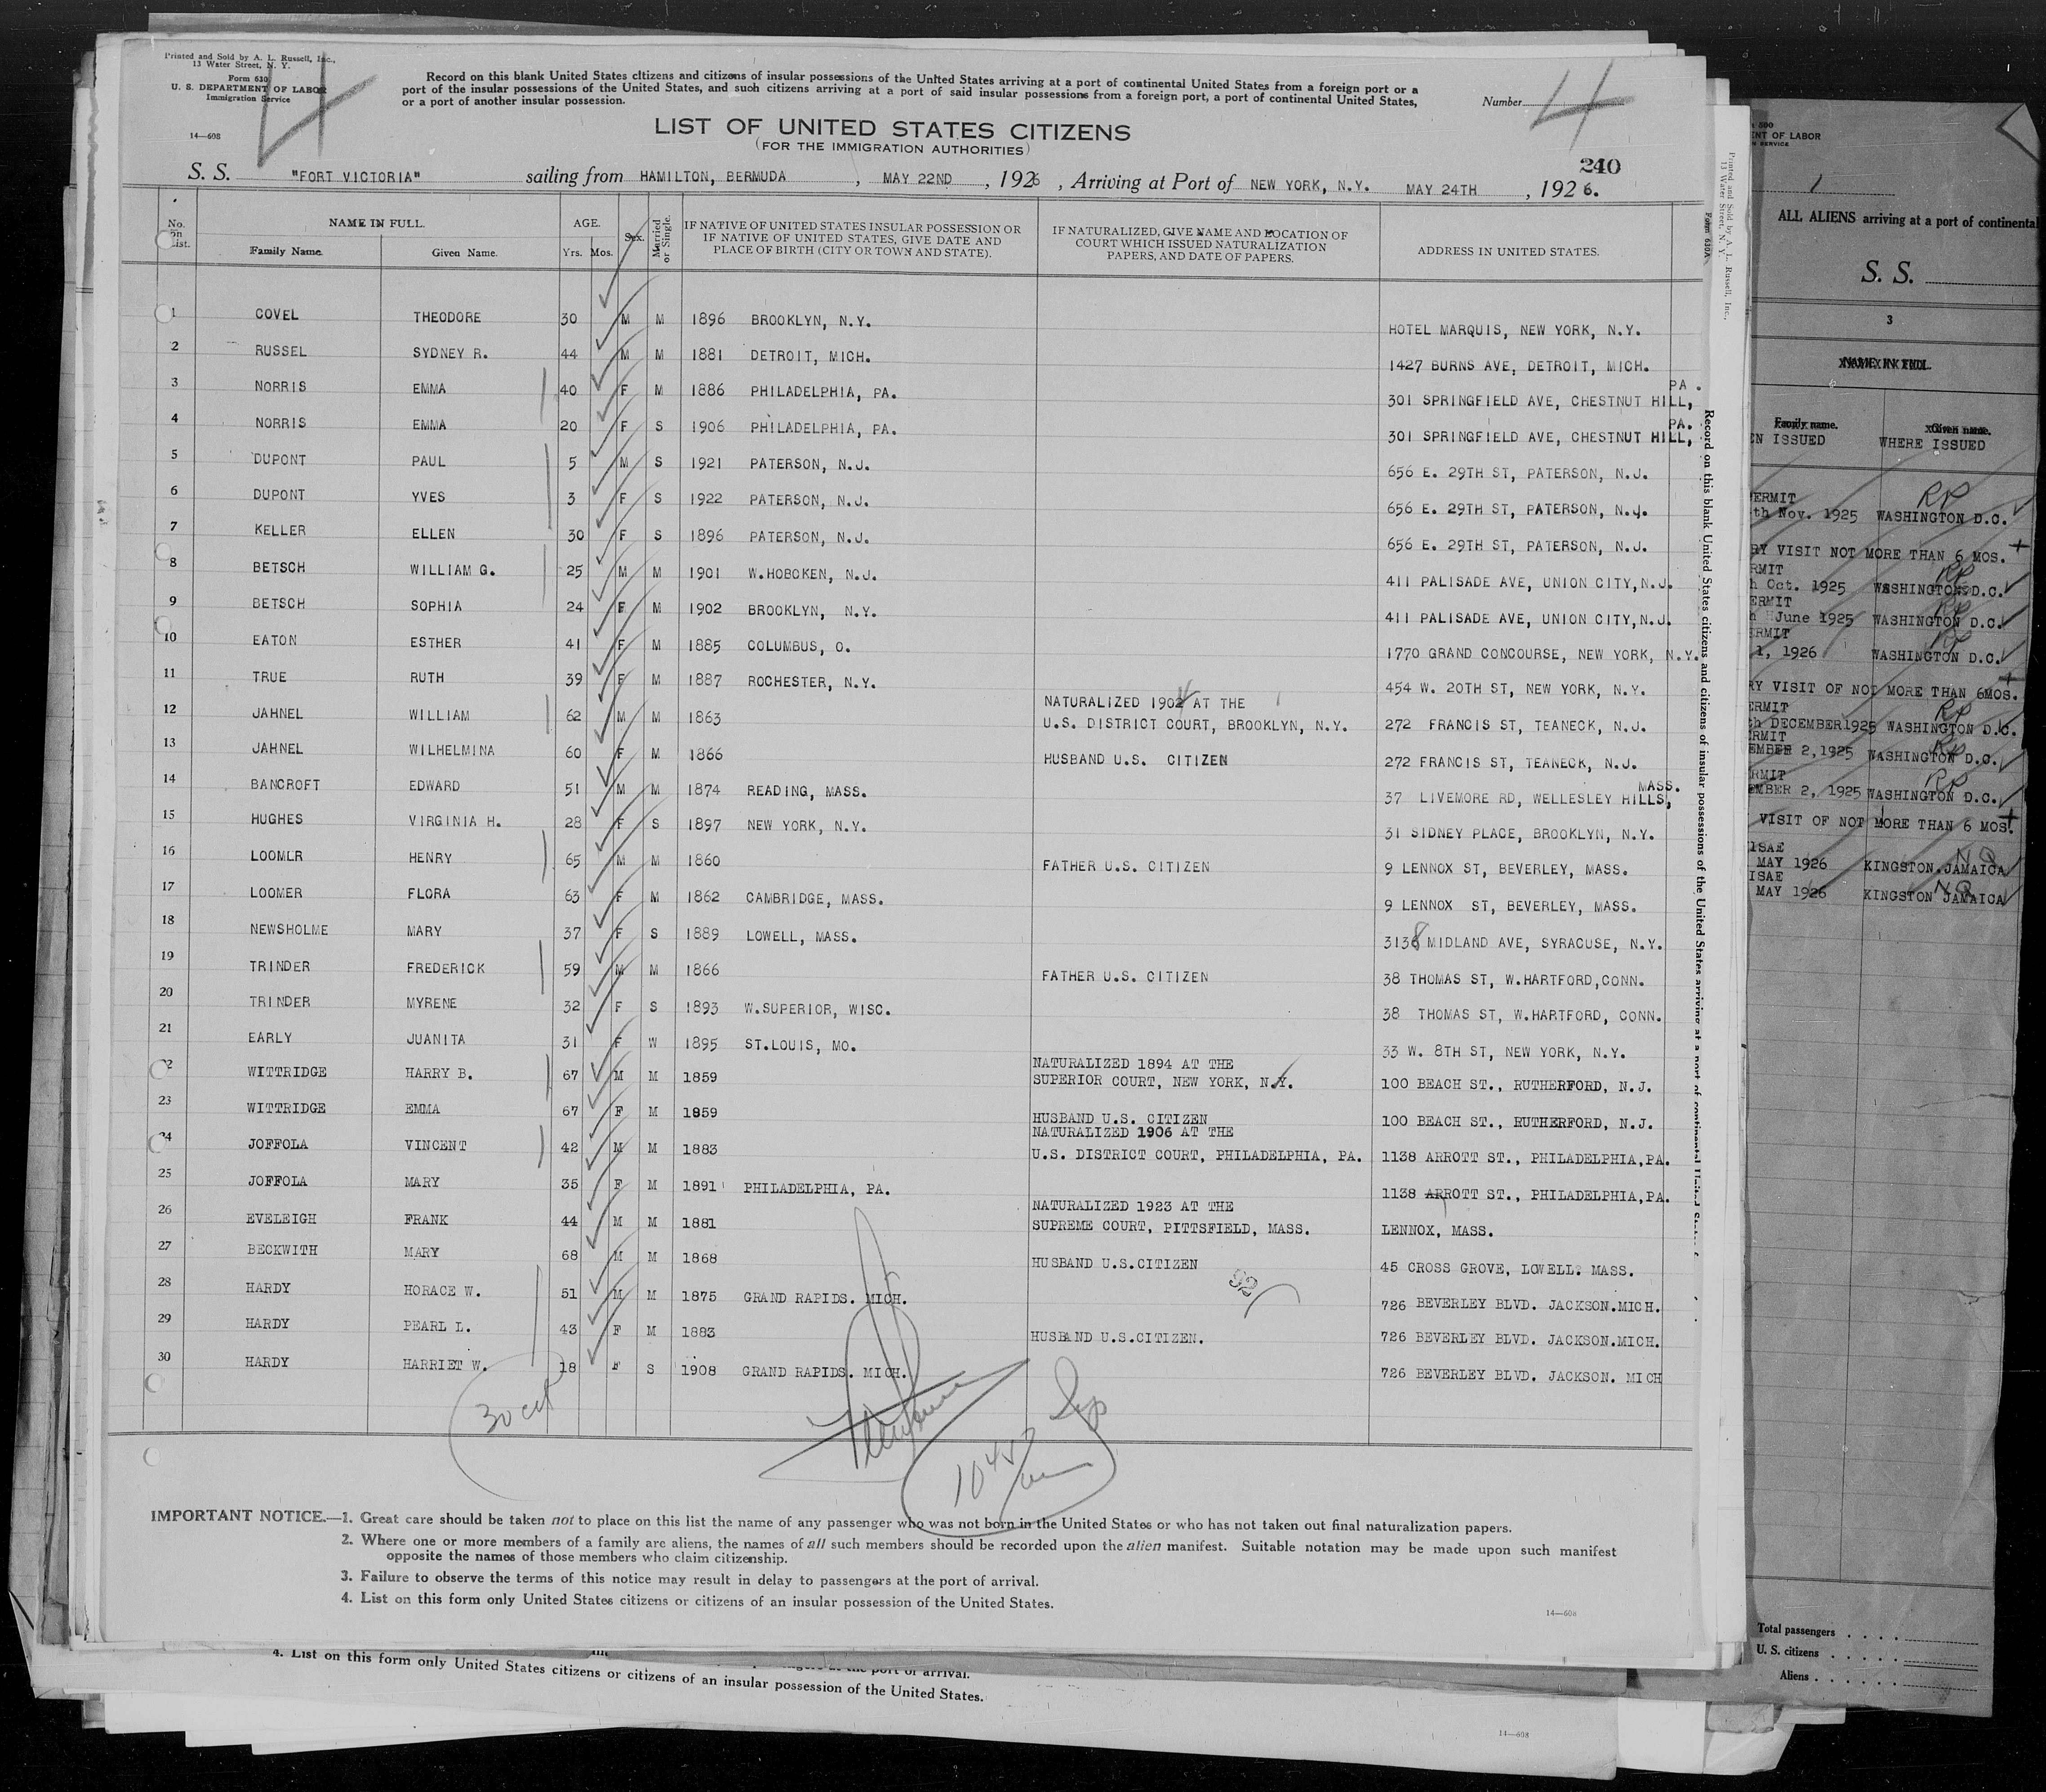 Printed and Sold by A. L. Russell, Inc.,
13 Water Street, N. Y.
Form 630
U. S. DEPARTMENT OF LABOR
Immigration Service
14—608
4
Record on this blank United States citizens and citizens of insular possessions of the United States arriving at a port of continental United States from a foreign port or a
port of the insular possessions of the United States, and such citizens arriving at a port of said insular possessions from a foreign port, a port of continental United States,
or a port of another insular possession.
Number 4
LIST OF UNITED STATES CITIZENS
(FOR THE IMMIGRATION AUTHORITIES)
240
S. S. "FORT VICTORIA" sailing from HAMILTON, BERMUDA, MAY 22ND, 1926, Arriving at Port of NEW YORK, N.Y. MAY 24TH, 1926.
No. on List. NAME IN FULL. Family Name. Given Name. AGE. Yrs. Mos. Sex. Married or Single. IF NATIVE OF UNITED STATES INSULAR POSSESSION OR IF NATIVE OF UNITED STATES, GIVE DATE AND PLACE OF BIRTH (CITY OR TOWN AND STATE). IF NATURALIZED, GIVE NAME AND LOCATION OF COURT WHICH ISSUED NATURALIZATION PAPERS, AND DATE OF PAPERS. ADDRESS IN UNITED STATES.
1 COVEL THEODORE 30 M M 1896 BROOKLYN, N.Y. HOTEL MARQUIS, NEW YORK, N.Y.
2 RUSSEL SYDNEY R. 44 M M 1881 DETROIT, MICH. 1427 BURNS AVE, DETROIT, MICH.
3 NORRIS EMMA 40 F M 1886 PHILADELPHIA, PA. 301 SPRINGFIELD AVE, CHESTNUT HILL, PA.
4 NORRIS EMMA 20 F S 1906 PHILADELPHIA, PA. 301 SPRINGFIELD AVE, CHESTNUT HILL, PA.
5 DUPONT PAUL 5 M S 1921 PATERSON, N.J. 656 E. 29TH ST, PATERSON, N.J.
6 DUPONT YVES 3 F S 1922 PATERSON, N.J. 656 E. 29TH ST, PATERSON, N.J.
7 KELLER ELLEN 30 F S 1896 PATERSON, N.J. 656 E. 29TH ST, PATERSON, N.J.
8 BETSCH WILLIAM G. 25 M M 1901 W.HOBOKEN, N.J. 411 PALISADE AVE, UNION CITY,N.J.
9 BETSCH SOPHIA 24 F M 1902 BROOKLYN, N.Y. 411 PALISADE AVE, UNION CITY,N.J.
10 EATON ESTHER 41 F M 1885 COLUMBUS, O. 1770 GRAND CONCOURSE, NEW YORK, N.Y.
11 TRUE RUTH 39 F M 1887 ROCHESTER, N.Y. 454 W. 20TH ST, NEW YORK, N.Y.
12 JAHNEL WILLIAM 62 M M 1863 NATURALIZED 1904 AT THE U.S. DISTRICT COURT, BROOKLYN, N.Y. 272 FRANCIS ST, TEANECK, N.J.
13 JAHNEL WILHELMINA 60 F M 1866 HUSBAND U.S. CITIZEN 272 FRANCIS ST, TEANECK, N.J.
14 BANCROFT EDWARD 51 M M 1874 READING, MASS. 37 LIVEMORE RD, WELLESLEY HILLS, MASS.
15 HUGHES VIRGINIA H. 28 F S 1897 NEW YORK, N.Y. 31 SIDNEY PLACE, BROOKLYN, N.Y.
16 LOOMLR HENRY 65 M M 1860 FATHER U.S. CITIZEN 9 LENNOX ST, BEVERLEY, MASS.
17 LOOMER FLORA 63 F M 1862 CAMBRIDGE, MASS. 9 LENNOX ST, BEVERLEY, MASS.
18 NEWSHOLME MARY 37 F S 1889 LOWELL, MASS. 3138 MIDLAND AVE, SYRACUSE, N.Y.
19 TRINDER FREDERICK 59 M M 1866 FATHER U.S. CITIZEN 38 THOMAS ST, W.HARTFORD,CONN.
20 TRINDER MYRENE 32 F S 1893 W.SUPERIOR, WISC. 38 THOMAS ST, W.HARTFORD, CONN.
21 EARLY JUANITA 31 F W 1895 ST.LOUIS, MO. 33 W. 8TH ST, NEW YORK, N.Y.
22 WITTRIDGE HARRY B. 67 M M 1859 NATURALIZED 1894 AT THE SUPERIOR COURT, NEW YORK, N.Y. 100 BEACH ST., RUTHERFORD, N.J.
23 WITTRIDGE EMMA 67 F M 1859 HUSBAND U.S. CITIZEN 100 BEACH ST., RUTHERFORD, N.J.
24 JOFFOLA VINCENT 42 M M 1883 NATURALIZED 1906 AT THE U.S. DISTRICT COURT, PHILADELPHIA, PA. 1138 ARROTT ST., PHILADELPHIA,PA.
25 JOFFOLA MARY 35 F M 1891 PHILADELPHIA, PA. 1138 ARROTT ST., PHILADELPHIA,PA.
26 EVELEIGH FRANK 44 M M 1881 NATURALIZED 1923 AT THE SUPREME COURT, PITTSFIELD, MASS. LENNOX, MASS.
27 BECKWITH MARY 68 M M 1868 HUSBAND U.S.CITIZEN 45 CROSS GROVE, LOWELL. MASS.
28 HARDY HORACE W. 51 M M 1875 GRAND RAPIDS. MICH. 726 BEVERLEY BLVD. JACKSON.MICH.
29 HARDY PEARL L. 43 F M 1883 HUSBAND U.S.CITIZEN. 726 BEVERLEY BLVD. JACKSON.MICH.
30 HARDY HARRIET W. 18 F S 1908 GRAND RAPIDS. MICH. 726 BEVERLEY BLVD. JACKSON. MICH
92
30 cit
IMPORTANT NOTICE.—1. Great care should be taken not to place on this list the name of any passenger who was not born in the United States or who has not taken out final naturalization papers.
2. Where one or more members of a family are aliens, the names of all such members should be recorded upon the alien manifest. Suitable notation may be made upon such manifest
opposite the names of those members who claim citizenship.
3. Failure to observe the terms of this notice may result in delay to passengers at the port of arrival.
4. List on this form only United States citizens or citizens of an insular possession of the United States.
14—608
port of arrival.
4. List on this form only United States citizens or citizens of an insular possession of the United States.
14—608
Printed and Sold by A. L. Russell, Inc.,
13 Water Street, N. Y.
Form 630A
Record on this blank United States citizens and citizens of insular possessions of the United States arriving at a port of continental United States
OF LABOR
SERVICE
ALL ALIENS arriving at a port of continental
S. S.
3
NAME IN FULL.
Family name. Given name.
ISSUED WHERE ISSUED
ERMIT RP
th Nov. 1925 WASHINGTON D.C.
RY VISIT NOT MORE THAN 6 MOS.
RMIT RP
h Oct. 1925 WASHINGTON D.C.
ERMIT RP
June 1925 WASHINGTON D.C.
ERMIT RP
1, 1926 WASHINGTON D.C.
RY VISIT OF NOT MORE THAN 6MOS.
ERMIT RP
th DECEMBER1925 WASHINGTON D.C.
RMIT RP
EMBER 2,1925 WASHINGTON D.C.
RMIT RP
EMBER 2, 1925 WASHINGTON D.C.
VISIT OF NOT MORE THAN 6 MOS.
ISAE NQ
MAY 1926 KINGSTON.JAMAICA
ISAE NQ
MAY 1926 KINGSTON JAMAICA
Total passengers
U. S. citizens
Aliens